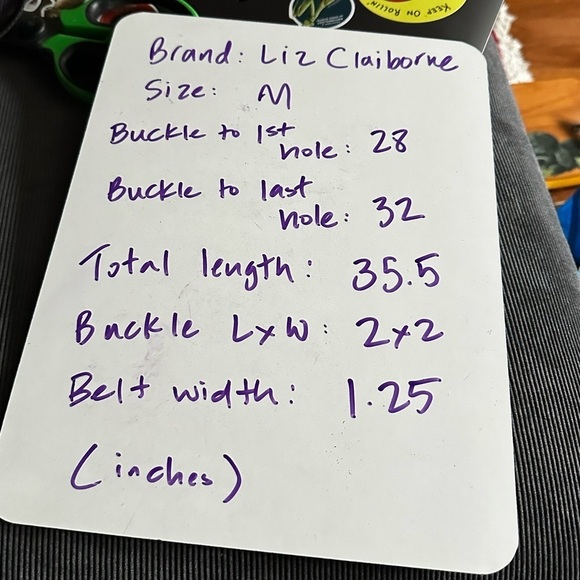 KEEP ON ROLLIN'
Brand: Liz Claiborne
Size: M
Buckle to 1st
hole: 28
Buckle to last
hole: 32
Total length: 35.5
Buckle LxW: 2x2
Belt width: 1.25
(inches)